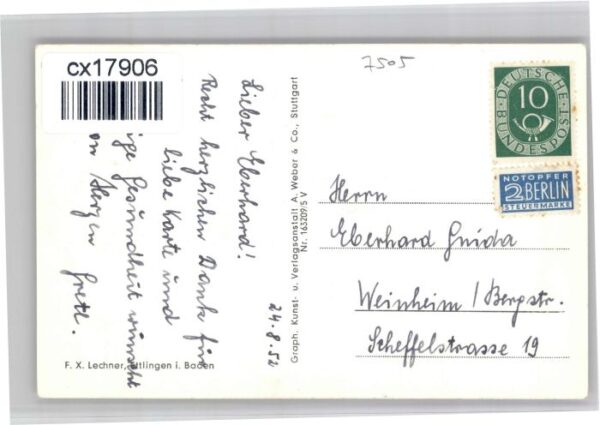 cx17906
7505
Lieber Eberhard!
Recht herzlichen Dank für
liebe Karte und
ige Gesundheit wünscht
on Herzen Gretl.
24.8.52
F. X. Lechner, Ettlingen i. Baden
Graph. Kunst- u. Verlagsanstalt A. Weber & Co., Stuttgart
Nr. 163209/5 V
DEUTSCHE
BUNDESPOST
10
NOTOPFER
2 BERLIN
STEUERMARKE
Herrn
Eberhard Guida
Weinheim / Bergstr.
Scheffelstrasse 19